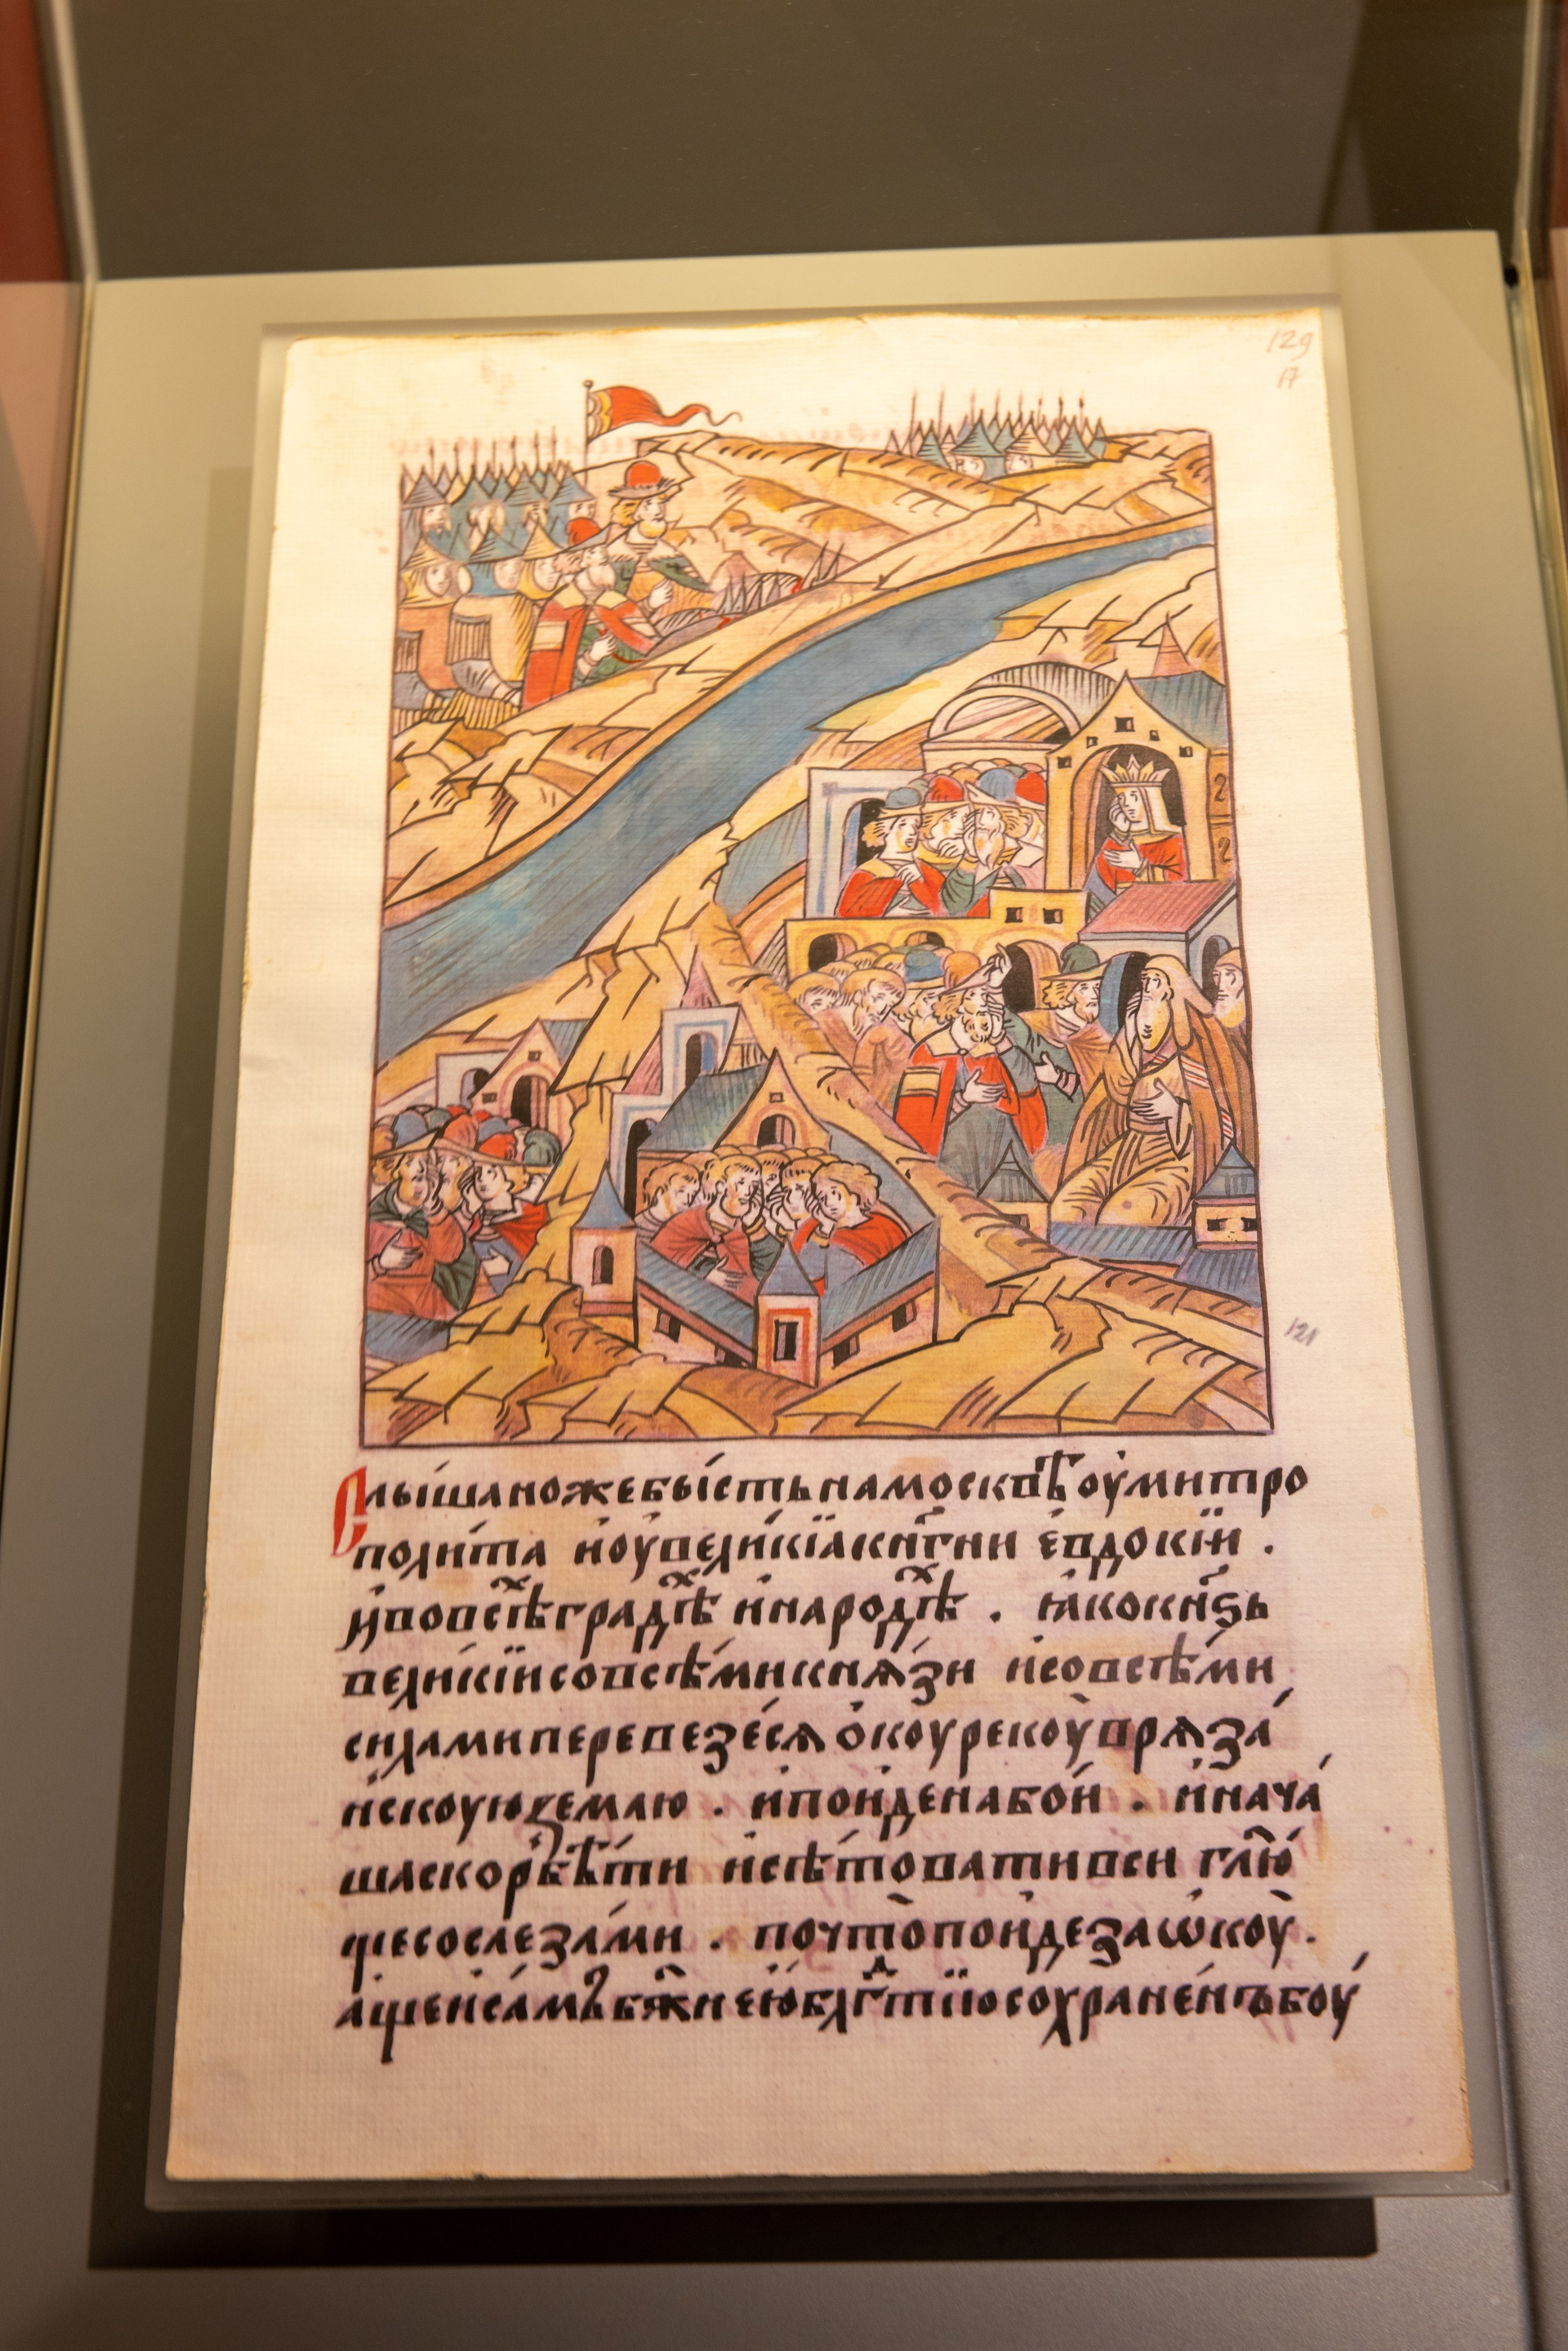 129
17
121
Слы́шаножебы́стьнамоскв҄ѣоу́митро
поли́та и҆оу҆вели́кїѧкн҃гни є҆вдокїи .
и҆вовсѣⷯградѣⷯ и҆народѣⷯ . ꙗ҆кокн҃ѕь
вели́кїисовсѣ́микнѧ́зи и҆совсѣ́ми
си́ламиперевезе́сѧ о҆коурекоу̀врѧза́
н́скоуюземлю . и҆пои́денабо́й . и҆нача́
шаскорбѣ́ти и҆сѣ́товативси гл҃ю́
щесослеза́ми . почто̀пои́дезаѡ҆коу̀ .
а́щеиса́мъбж҃иеюбл҃гⷣтїюсохране́нъбоу́